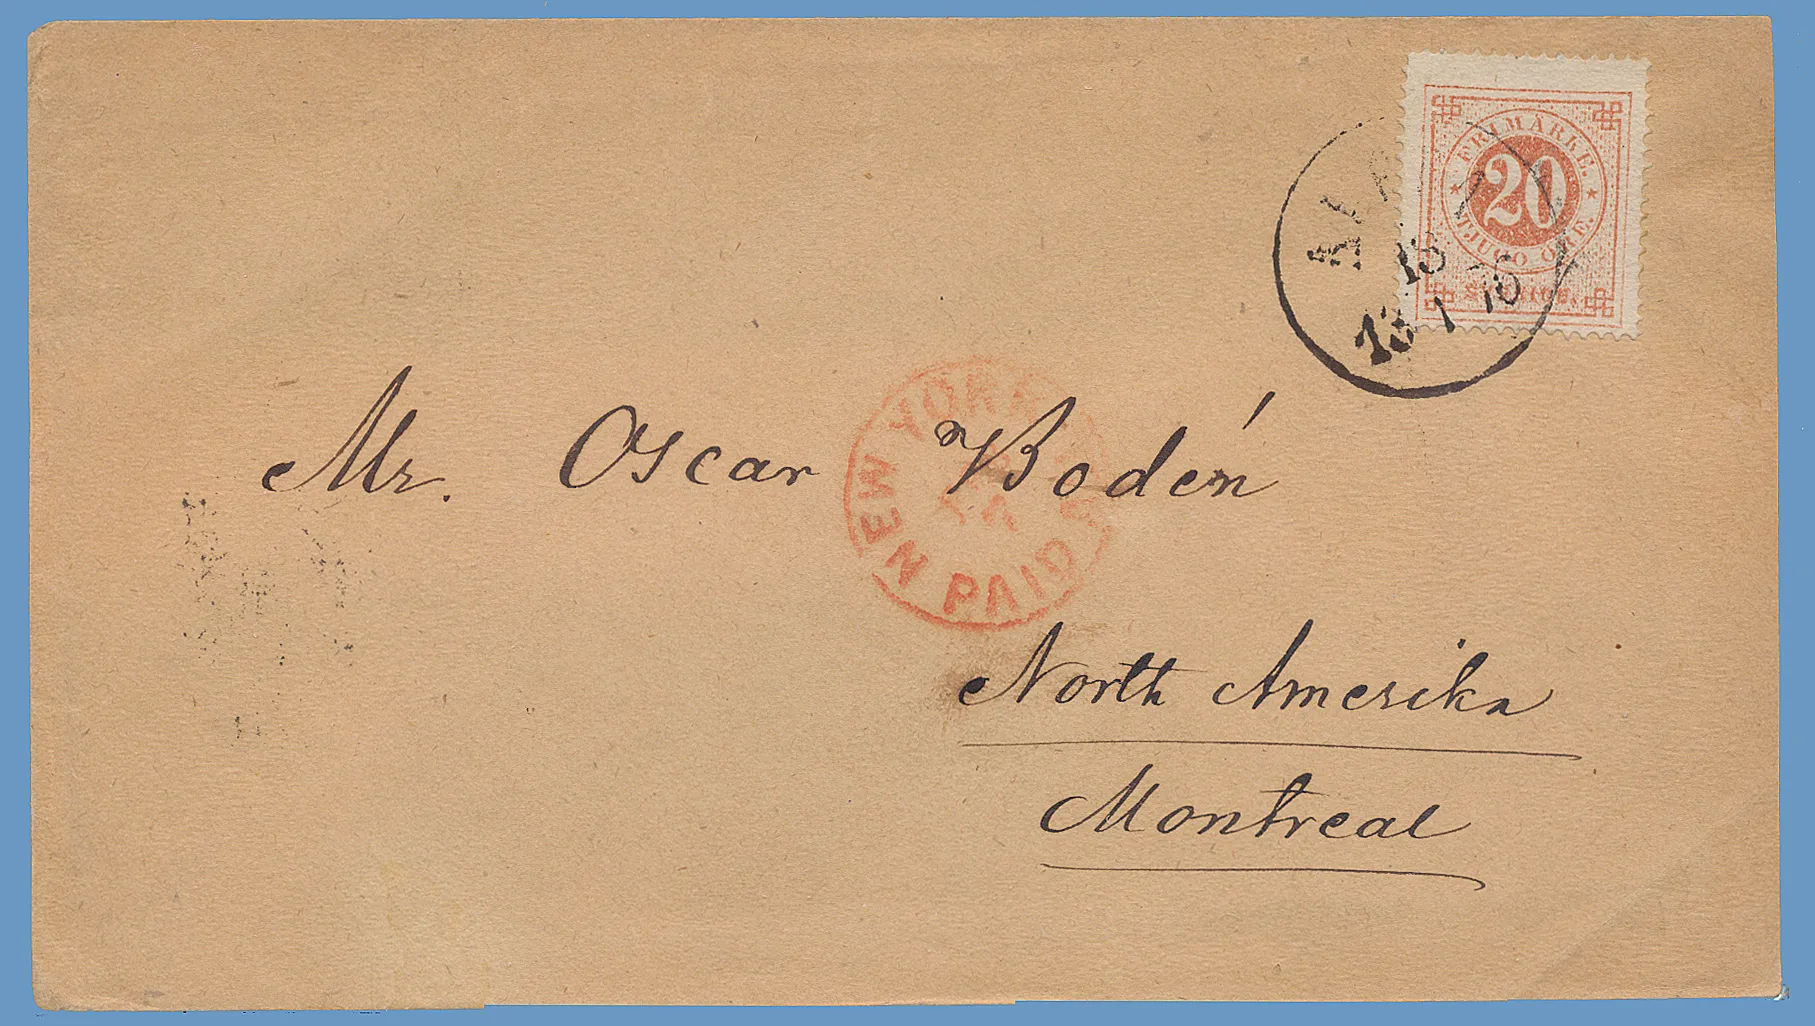 FRIMÄRKE.
20
TJUGO ÖRE.
SVERIGE.
13 1 76
NEW YORK
PAID
Mr. Oscar Bodén
North Amerika
Montreal